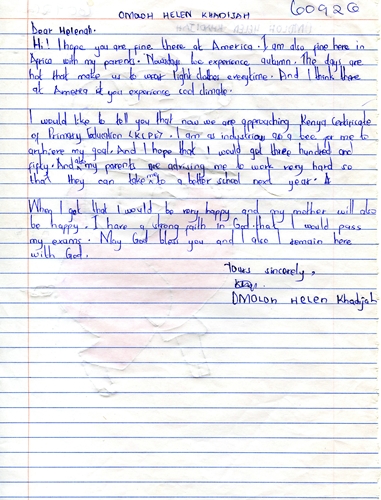 60926
OMOLOH HELEN KHADIJAH
Dear Helenah.
Hi! I hope you are fine there at America. I am also fine here in
Africa with my parents. Nowadays we experience autumn. The days are
hot that make us to wear light clothes everytime. And I think there
at America is you experience cool climate.
I would like to tell you that now we are approaching Kenya Certificate
of Primary Education (KCPE). I am as industrious as a bee for me to
archieve my goal. And I hope that I would get three hundred and
fifty. And also my parents are advising me to work very hard so
that they can take me to a better school next year.
When I get that I would be very happy and my mother will also
be happy. I have a strong faith in God that I would pass
my exams. May God bless you and I also remain here
with God.
Yours sincerely,
OMOLOH HELEN Khadijah